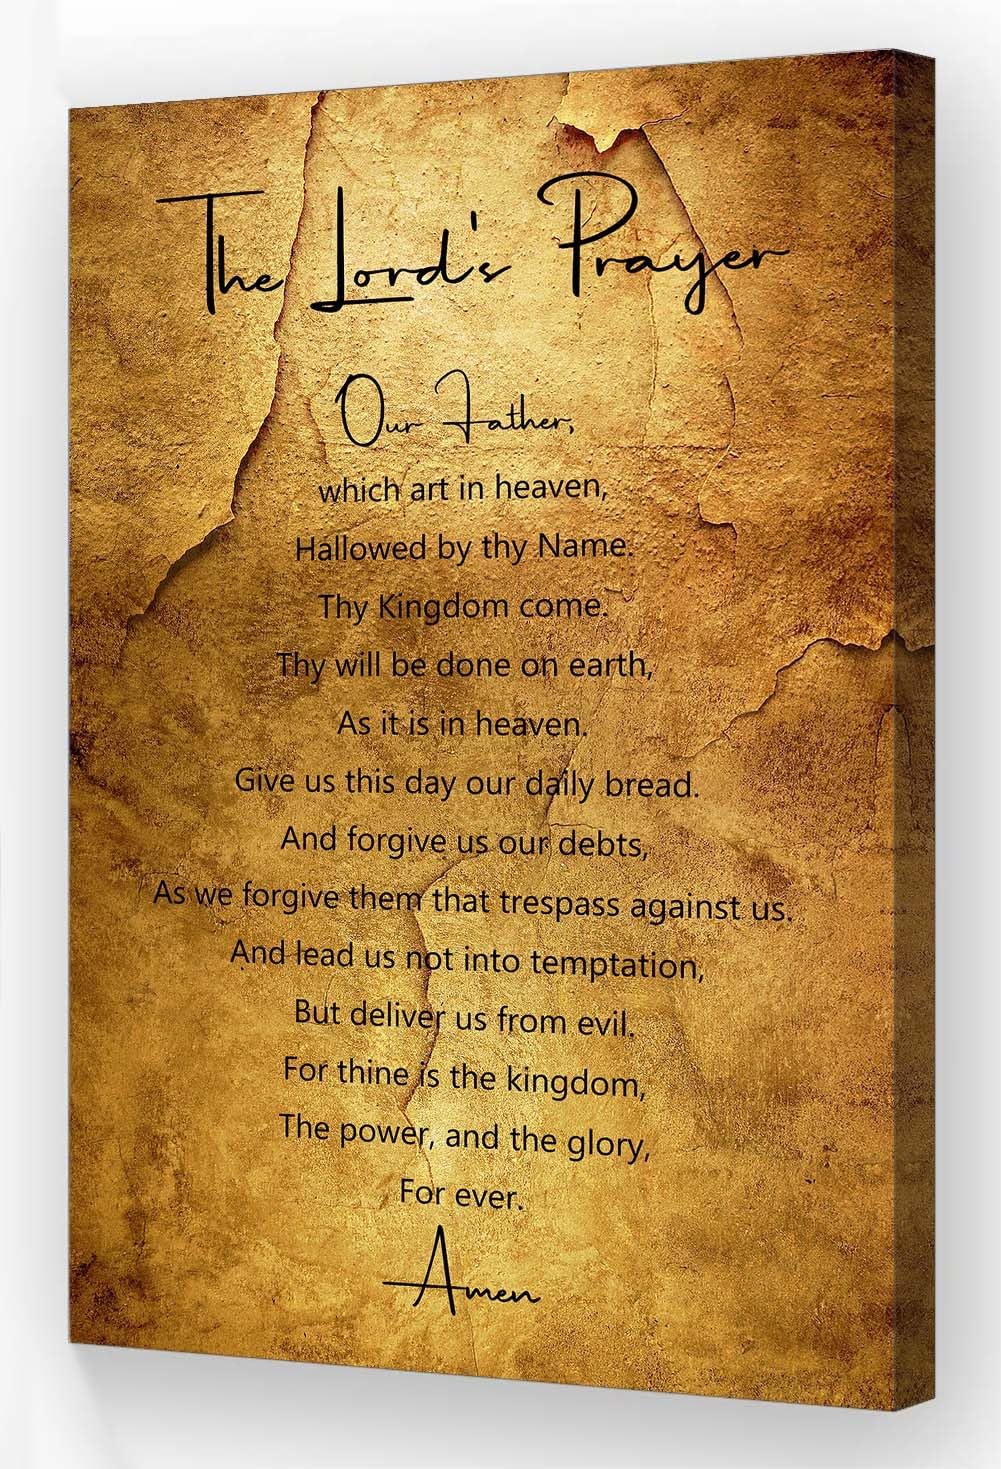 The Lord's Prayer
Our Father,
which art in heaven,
Hallowed by thy Name.
Thy Kingdom come.
Thy will be done on earth,
As it is in heaven.
Give us this day our daily bread.
And forgive us our debts,
As we forgive them that trespass against us.
And lead us not into temptation,
But deliver us from evil.
For thine is the kingdom,
The power, and the glory,
For ever.
Amen